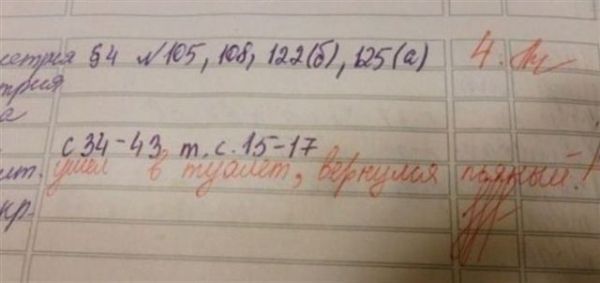 метрия §4 №105, 108, 122(б), 125(а) 4.
трия
а
с 34-43 т. с. 15-17
ит. ушел в туалет, вернулся пьяный!
кр.